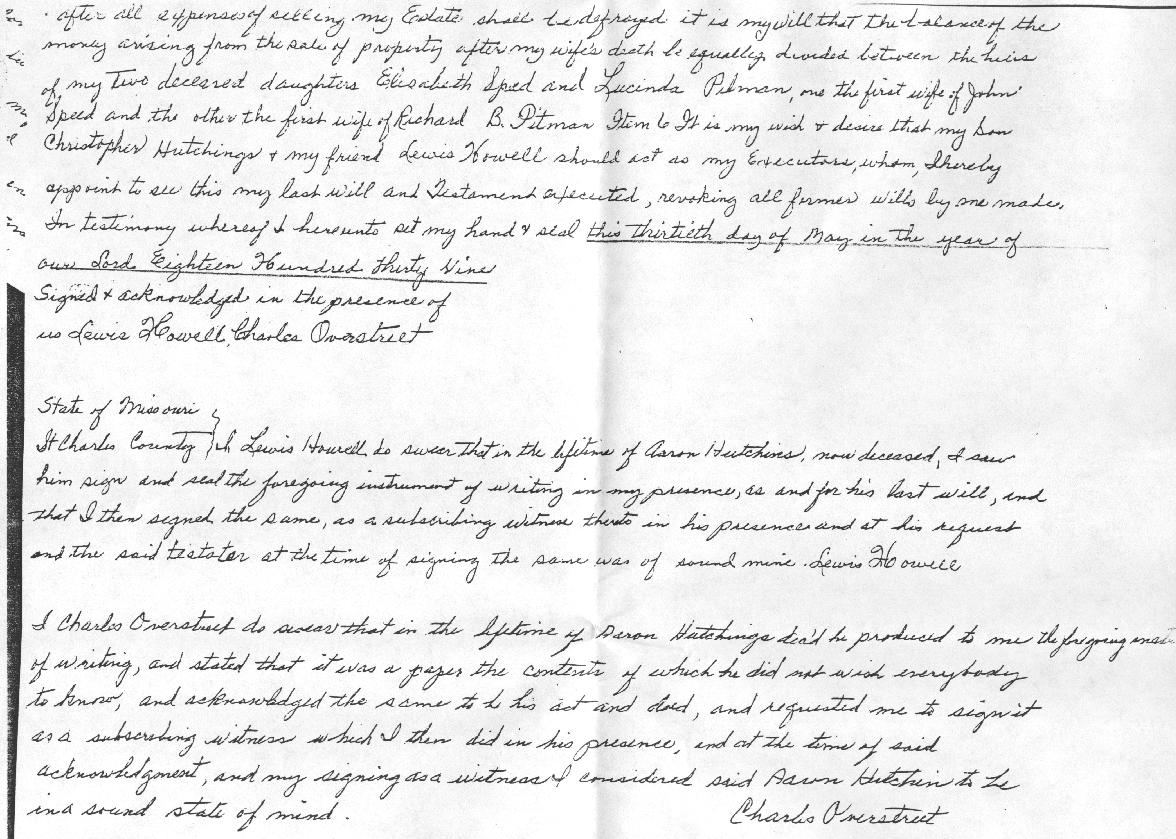 after all expenses of selling my Estate shall be defrayed it is my will that the balance of the
money arising from the sale of property after my wife's death be equally divided between the heirs
of my Two deceased daughters Elisabeth Speed and Lucinda Pitman, one the first wife of John
Speed and the other the first wife of Richard B. Pitman Item 6 It is my wish & desire that my Son
Christopher Hutchings & my friend Lewis Howell should act as my Executors, whom, I hereby
appoint to see this my last will and Testament executed, revoking all former wills by me made.
In testimony whereof I hereunto set my hand & seal this thirtieth day of May in the year of
our Lord Eighteen Hundred Thirty Nine
Signed & acknowledged in the presence of
us Lewis Howell, Charles Overstreet
State of Missouri }
St Charles County } I Lewis Howell do swear that in the lifetime of Aaron Hutchins, now deceased, I saw
him sign and seal the foregoing instrument of writing in my presence, as and for his last will, and
that I then signed the same, as a subscribing witness thereto in his presence and at his request
and the said testator at the time of signing the same was of sound mine. Lewis Howell
I Charles Overstreet do swear that in the lifetime of Aaron Hutchings dec'd he produced to me the foregoing
of writing, and stated that it was a paper the contents of which he did not wish everybody
to know, and acknowledged the same to be his act and deed, and requested me to sign it
as a subscribing witness which I then did in his presence, and at the time of said
acknowledgment, and my signing as a witness I considered said Aaron Hutchin to be
in a sound state of mind.
Charles Overstreet